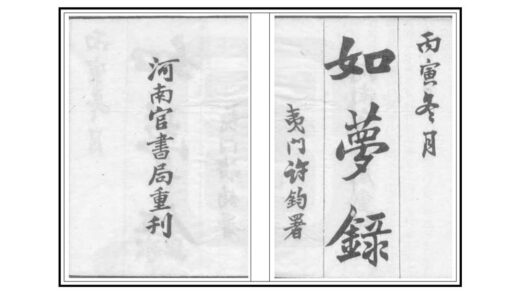 丙寅冬月
如夢錄
夷門許鈞署
河南官書局重刊